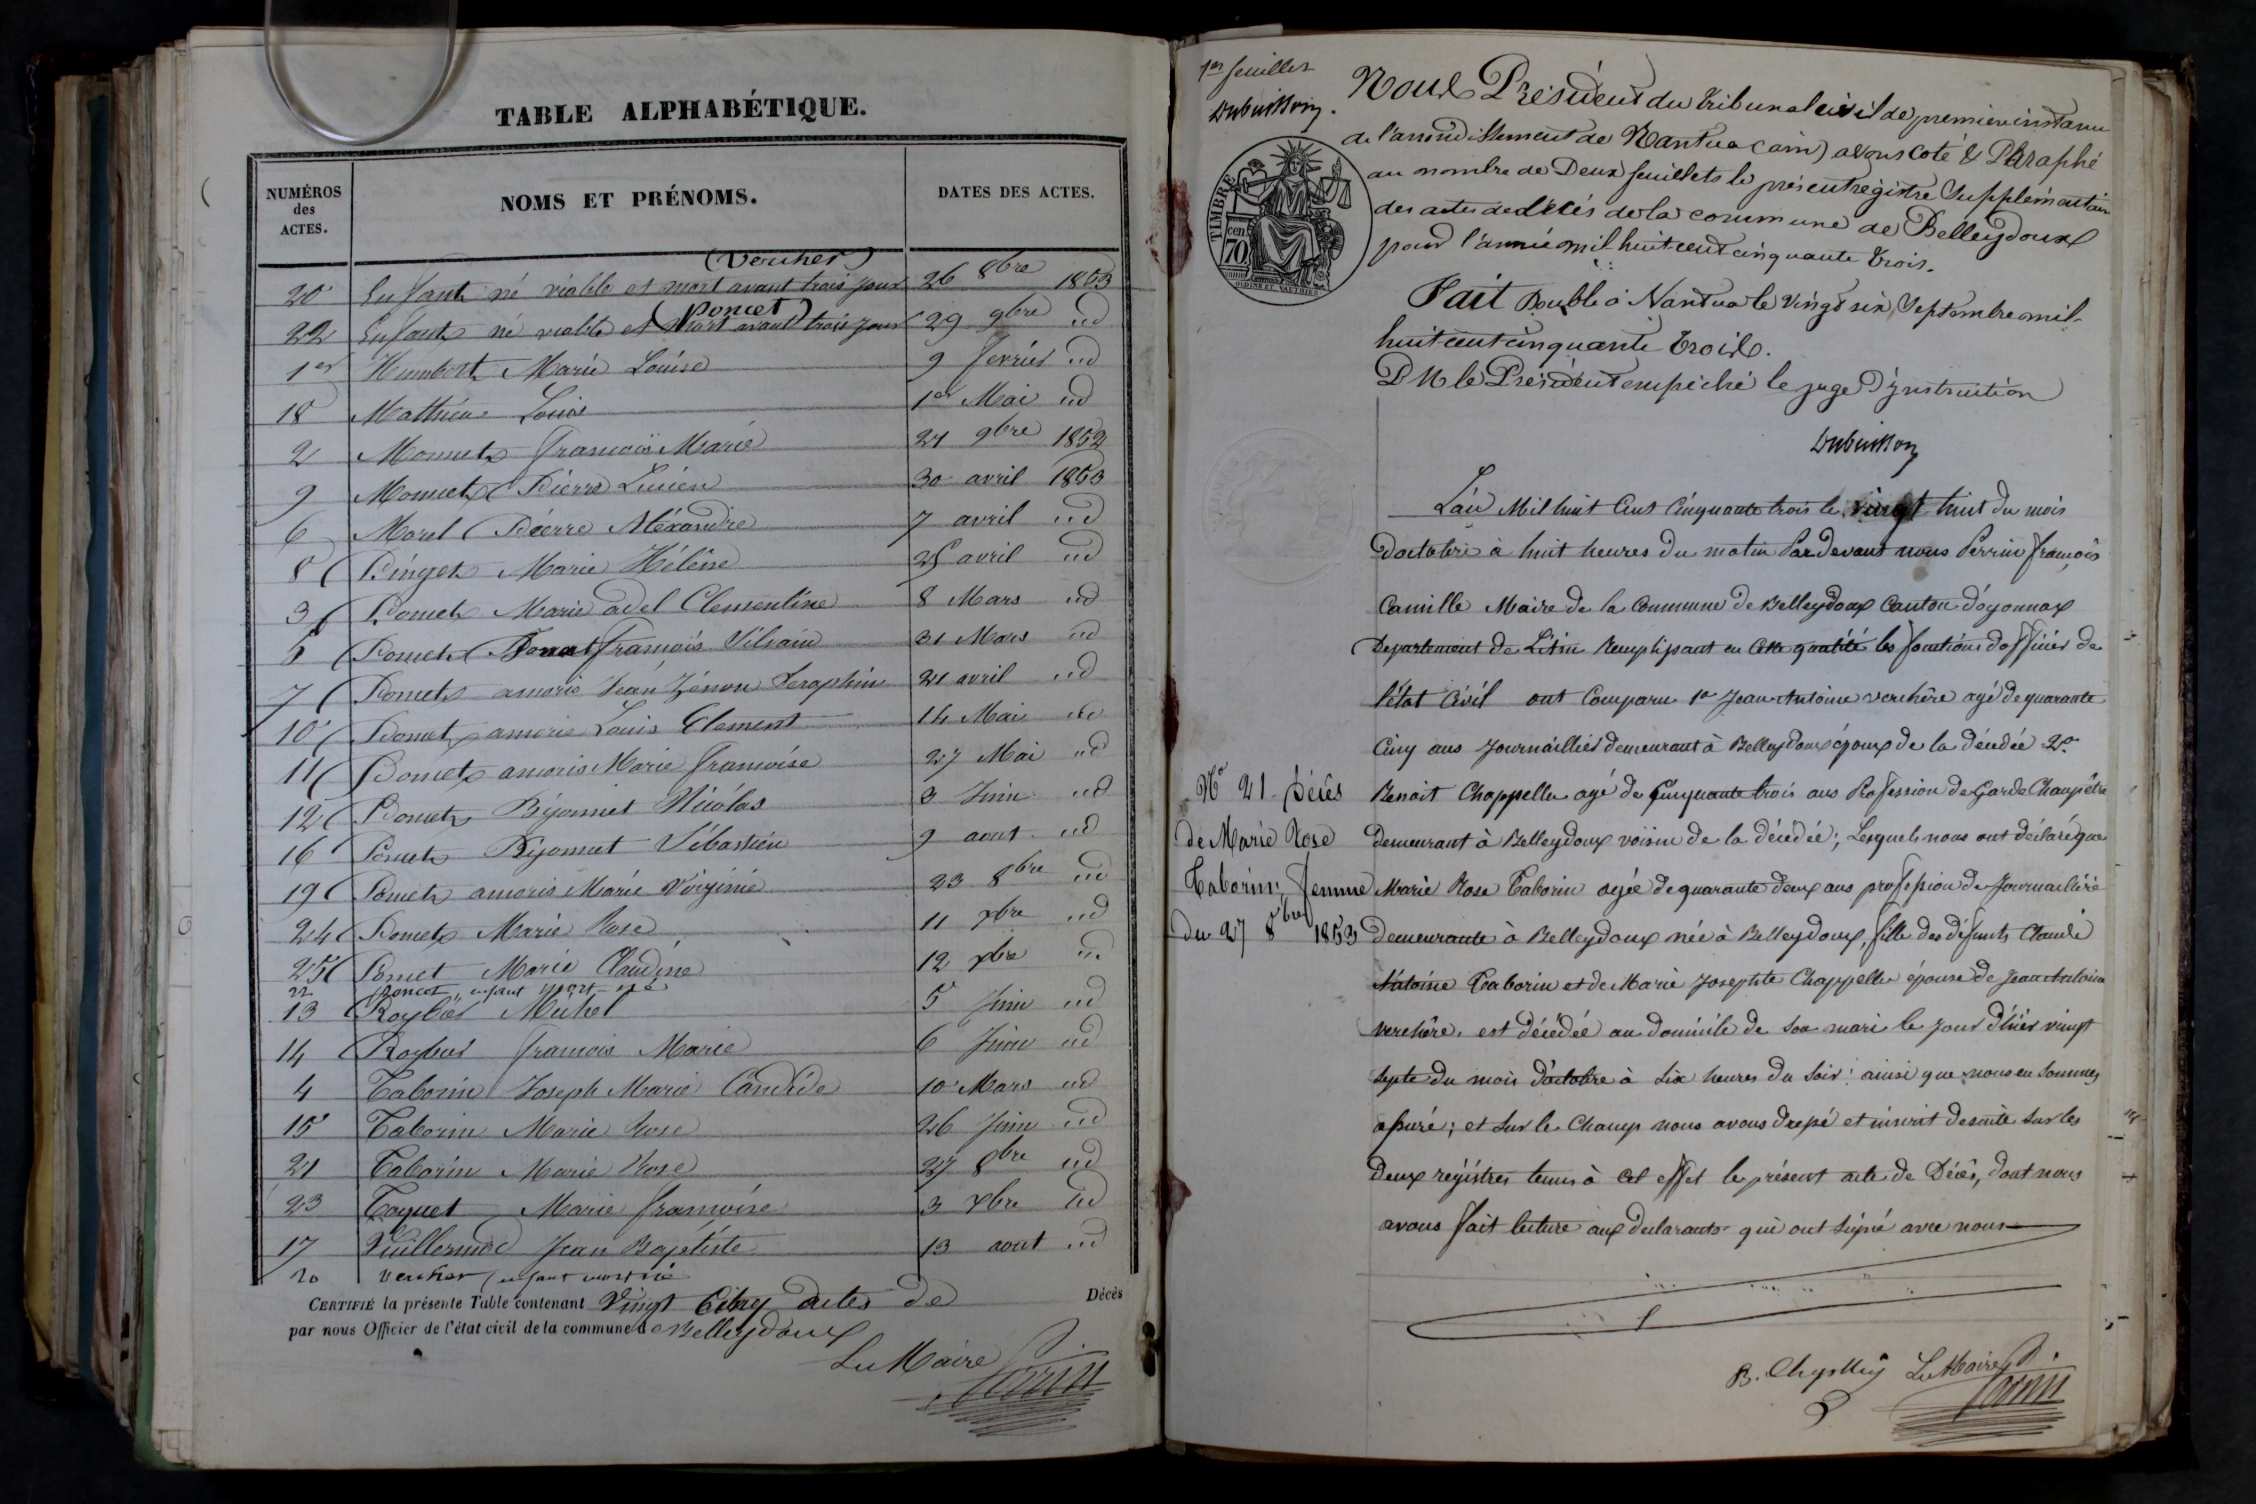 TABLE ALPHABÉTIQUE.
NUMÉROS des ACTES. NOMS ET PRÉNOMS. DATES DES ACTES.
(Vercher)
20 Enfant né viable et mort avant trois jours 26 8bre 1853
(Poncet)
22 Enfant né viable et mort avant trois jours 29 9bre id
1er Humbert Marie Louise 9 fevrier id
18 Mathieu Louis 1er Mai id
2 Monnet francois Marie 21 9bre 1852
9 Monnet Pierre Lucien 30 avril 1853
6 Morel Pierre Aléxandre 7 avril id
8 Pinget Marie Hélène 25 avril id
3 Poncet Marie adel Clementine 8 Mars id
5 Poncet francois Silvain 31 Mars id
7 Poncet amoris Jean Zénon Seraphin 21 avril id
10 Poncet amoris Louis Clement 14 Mai id
11 Poncet amoris Marie francoise 27 Mai id
12 Poncet Bijonnet Nicolas 3 Juin id
16 Poncet Bijonnet Sébastien 9 aout id
19 Poncet amoris Marie Virginie 23 8bre id
24 Poncet Marie Rose 11 xbre id
25 Poncet Marie Claudine 12 xbre id
22 Poncet enfant mort né
13 Roybier Michel 5 Juin id
14 Roybier francois Marie 6 Juin id
4 Taborin Joseph Marie Candide 10 Mars id
15 Taborin Marie Rose 26 Juin id
21 Taborin Marie Rose 27 8bre id
23 Toquet Marie francoise 3 xbre id
17 Vuillermoz Jean Baptiste 13 aout id
20 Vercher (enfant mort né
CERTIFIÉ la présente Table contenant Vingt Cinq actes de Décès
par nous Officier de l'état civil de la commune d Belleydoux
Le Maire
Perrin
1er feuillet
Dubuisson
TIMBRE
70 cen
OUDINÉ ET VAUTHIER
Nous Président du tribunal civil de première instance
de l'arrondissement de Nantua (ain) avons coté & Paraphé
au nombre de Deux feuillets le présent registre Supplémentaire
des actes de décès de la commune de Belleydoux
pour l'année mil huit cent cinquante trois.
Fait Double à Nantua le vingt six Septembre mil
huit cent cinquante trois.
P M le Président empêché le juge d'instruction
Dubuisson
L'an Mil huit Cent Cinquante trois le vingt huit du mois
doctobre à huit heures du matin Par devant nous Perrin françois
Camille Maire de la Commune de Belleydoux Canton d'oyonnax
Departement de L'Ain Remplissant en Cette qualité les fonctions dofficier de
l'état Civil ont Comparu 1o Jean Antoine verchère agé de quarante
Cinq ans Journaillier demeurant à Belleydoux époux de la décédée 2o
Benoit Chappellu agé de Cinquante trois ans Profession de Garde Champêtre
demeurant à Belleydoux voisin de la décédée; Lesquels nous ont déclaré que
Marie Rose Taborin agée de quarante deux ans profession de Journaliere
demeurante à Belleydoux née à Belleydoux, fille des défunts Claude
Antoine Taborin et de Marie Josephte Chappellu épouse de Jean Antoine
verchère, est décédée au domicile de son mari le jour d'hier vingt
septe du mois d'octobre à six heures du soir: ainsi que nous en sommes
assuré; et sur le Champ nous avons dressé et inscrit desuite sur les
deux régistres tenus à cet effet le présent acte de Décès, dont nous
avons fait lecture aux declarants qui ont signé avec nous
No 21 Décès
de Marie Rose
Taborin; femme
du 27 8bre 1853
Le Maire
Perrin